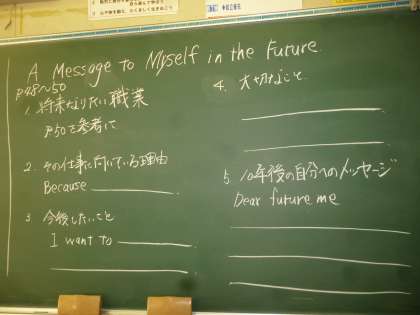 A Message to Myself in the Future
P48〜50
1. 将来なりたい職業
P50を参考に
2. その仕事に向いている理由
Because
3. 今後したいこと
I want to
4. 大切なこと
5. 10年後の自分へのメッセージ
Dear future me